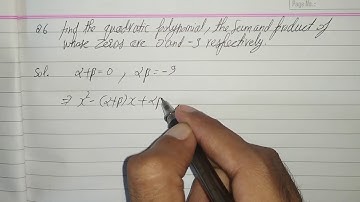 Q.6 find the quadratic polynomial, the sum and product of
whose zeros are 0 and -9 respectively.
Sol. α+β=0 , αβ=-9
⇒ x²-(α+β)x+αβ
Page No.: